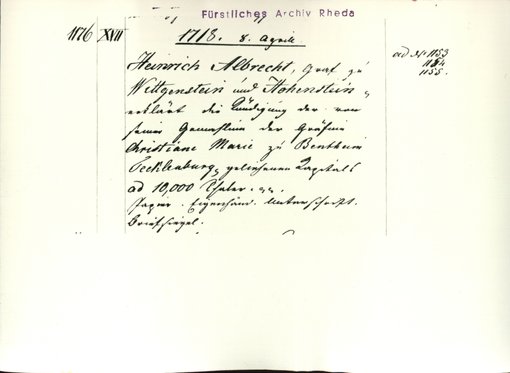 Fürstliches Archiv Rheda
1176 XVII 1718. 8. Aprill
ad No 1153
1154
1155.
Heinrich Albrecht, Graf zu
Wittgenstein und Hohenstein,
erklärt die Kündigung der von
seiner Gemahlin der Gräfin
Christiane Marie zu Bentheim
Tecklenburg, geliehenen Kapitals
ad 10,000 Thaler.
Papier. Eigenhänd. Unterschrift.
Briefsiegel.